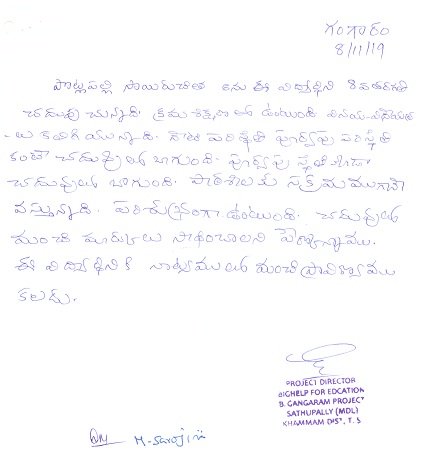 గంగారం
8/11/19
పొట్లపల్లి సాయిరుచిత అను ఈ విద్యార్థిని 8వ తరగతి
చదువు చున్నది. క్రమశిక్షణతో ఉంటుంది వినయ విధేయత
-లు కలిగియున్నది. పరిస్థితి పూర్వపు పరిస్థితి
కంటే చదువులో బాగుంది. పూర్వపు స్థితి కంటే
చదువులో బాగుంది. పాఠశాలకు సక్రమముగా
వస్తున్నది. పరిశుభ్రంగా ఉంటుంది. చదువులో
మంచి మార్కులు సాధించాలని
ఈ విద్యార్థినికి నాట్యములో మంచి ప్రావీణ్యము
కలదు.
PROJECT DIRECTOR
BIGHELP FOR EDCATION
B. GANGARAM PROJECT
SATHUPALLY (MDL)
KHAMMAM DIST, T. S
M. Sarojini